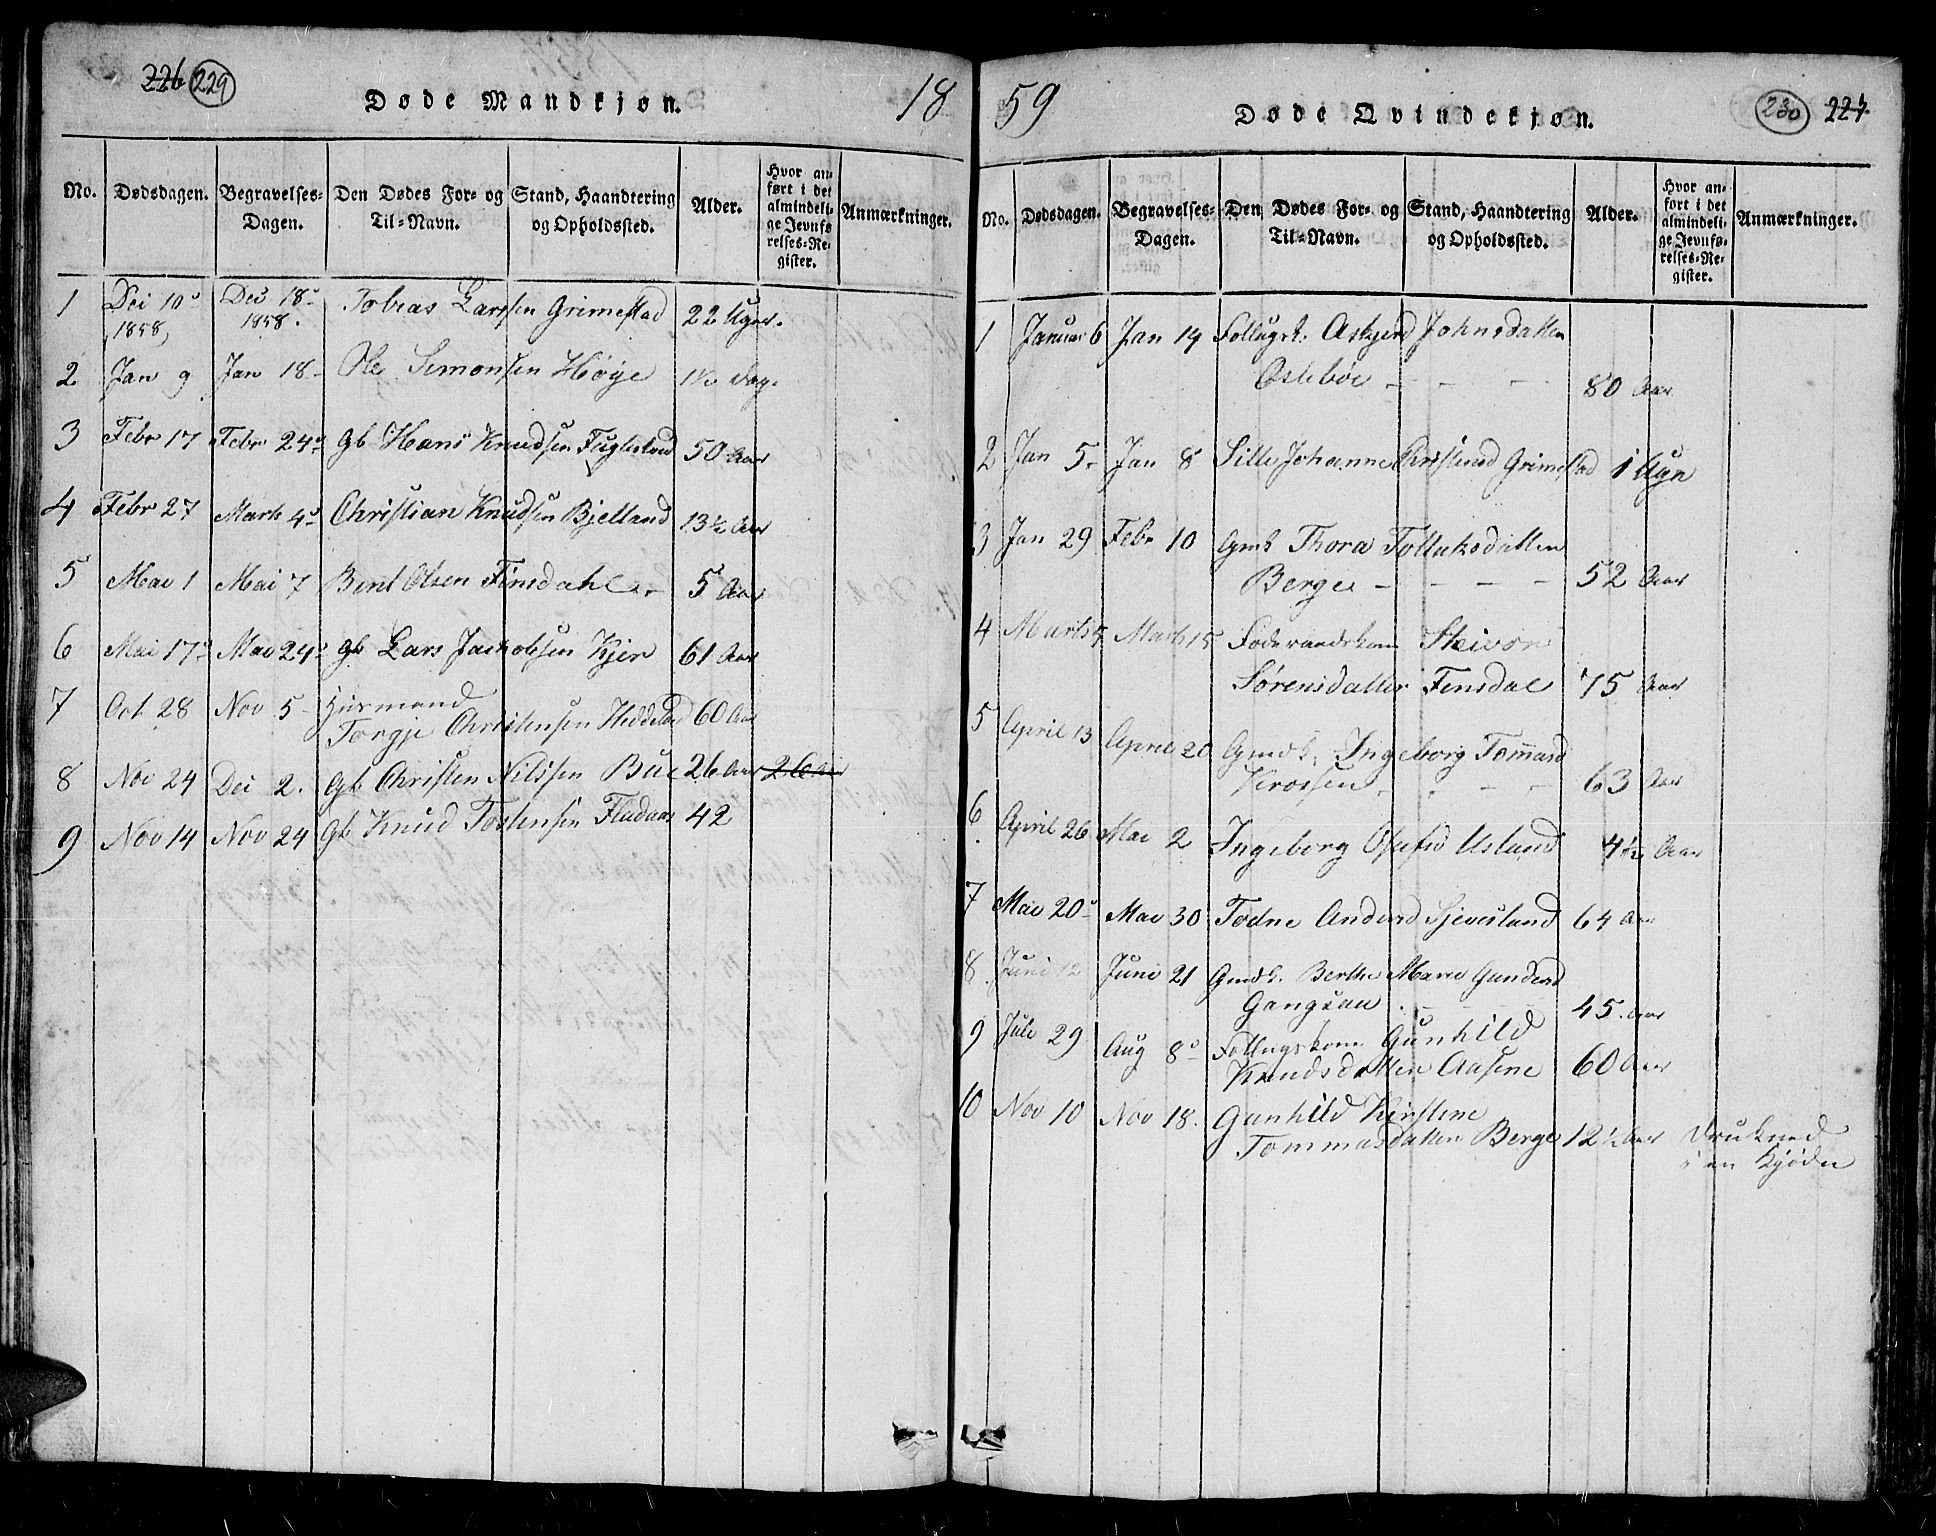 226 229
Døde Mandkjøn.
18
No. Dødsdagen. Begravelses-Dagen. Den Dødes For- og Til-Navn. Stand, Haandtering og Opholdssted. Alder. Hvor anført i det almindelige Jevnførelses-Register. Anmærkninger.
1 Dec 10 1858, Dec 18 1858. Tobias Larssen Grimestad 22 Uger.
2 Jan 9 Jan 18 Ole Simonsen Høye 1½ Dag.
3 Febr 17 Febr 24 Gb Hans Knudsen Fuglestved 50 Aar
4 Febr 27 Marts 4 Christian Knudsen Bjelland 13½ Aar
5 Mai 1 Mai 7 Bent Olsen Finsdahl 5 Aar
6 Mai 17 Mai 24 gb Lars Jacobsen Kjer 61 Aar
7 Oct 28 Nov 5 Huusmand
Torgje Christensen Heddeland 60 Aar
8 Nov 24 Dec 2. Gb Christen Nilssen Bue 26 Aar 26 Aar
9 Nov 14 Nov 24 Gb Knud Tostensen Fladaas 42
59
Døde Qvindekjøn.
230 227
No. Dødsdagen. Begravelses-Dagen. Den Dødes For- og Til-Navn. Stand, Haandtering og Opholdssted. Alder. Hvor anført i det almindelige Jevnførelses-Register. Anmærkninger.
1 Januar 6 Jan 14 Follugsk. Askjerd Johnsdatter
Oslebøe - - - 80 Aar
2 Jan 5 Jan 8 Sille Johanne Christensd Grimestad 1 Ugn
3 Jan 29 Febr 10 Gmk Thora Tollaksdatter
Berge - - - - 52 Aar
4 Marts 5 Marts 15 Føderaadskone Steivor
Sørensdatter Finsdal 75 Aar
5 April 13 April 20 Gmdk. Ingeborg Tommasd
Krossen - - - 63 Aar
6 April 26 Mai 2 Ingeborg Olufsd Usland 4½ Aar
7 Mai 20 Mai 30 Todne Andersd Sjevesland 64 Aar
8 Juni 12 Juni 21 Gmdk. Berthe Marie Gundersd
Gangsaa - - 45 Aar
9 Juli 29 Aug 8 Follugskone Gunhild
Knudsdatter Aasene 60 Aar
10 Nov 10 Nov 18. Gunhild Kirstene
Tommasdatter Berge 12½ Aar Druknet
i en Kjødn